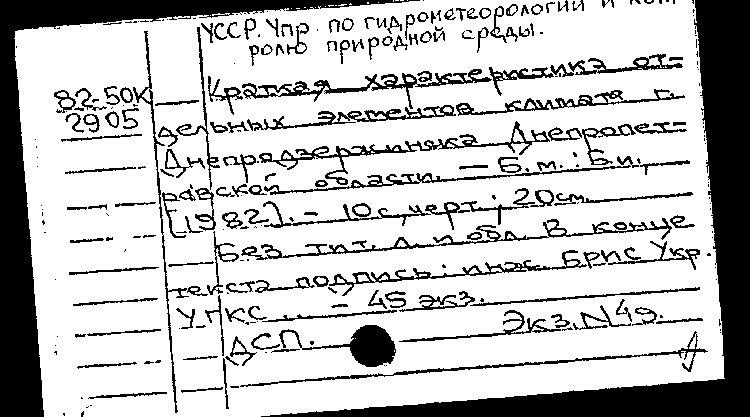 УССР. Упр. по гидрометеорологии и кон-
ролю природной среды.
82-50К
2905
Краткая характеристика от-
дельных элементов климата г.
Днепродзержинска Днепропет-
ровской области. — Б.м.: Б.и.,
[1982]. - 10 с., черт.; 20 см.
Без тит. л. и обл. В конце
текста подпись: инж. БРИС Укр.
УГКС... - 45 экз.
ДСП.
Экз. N 49.